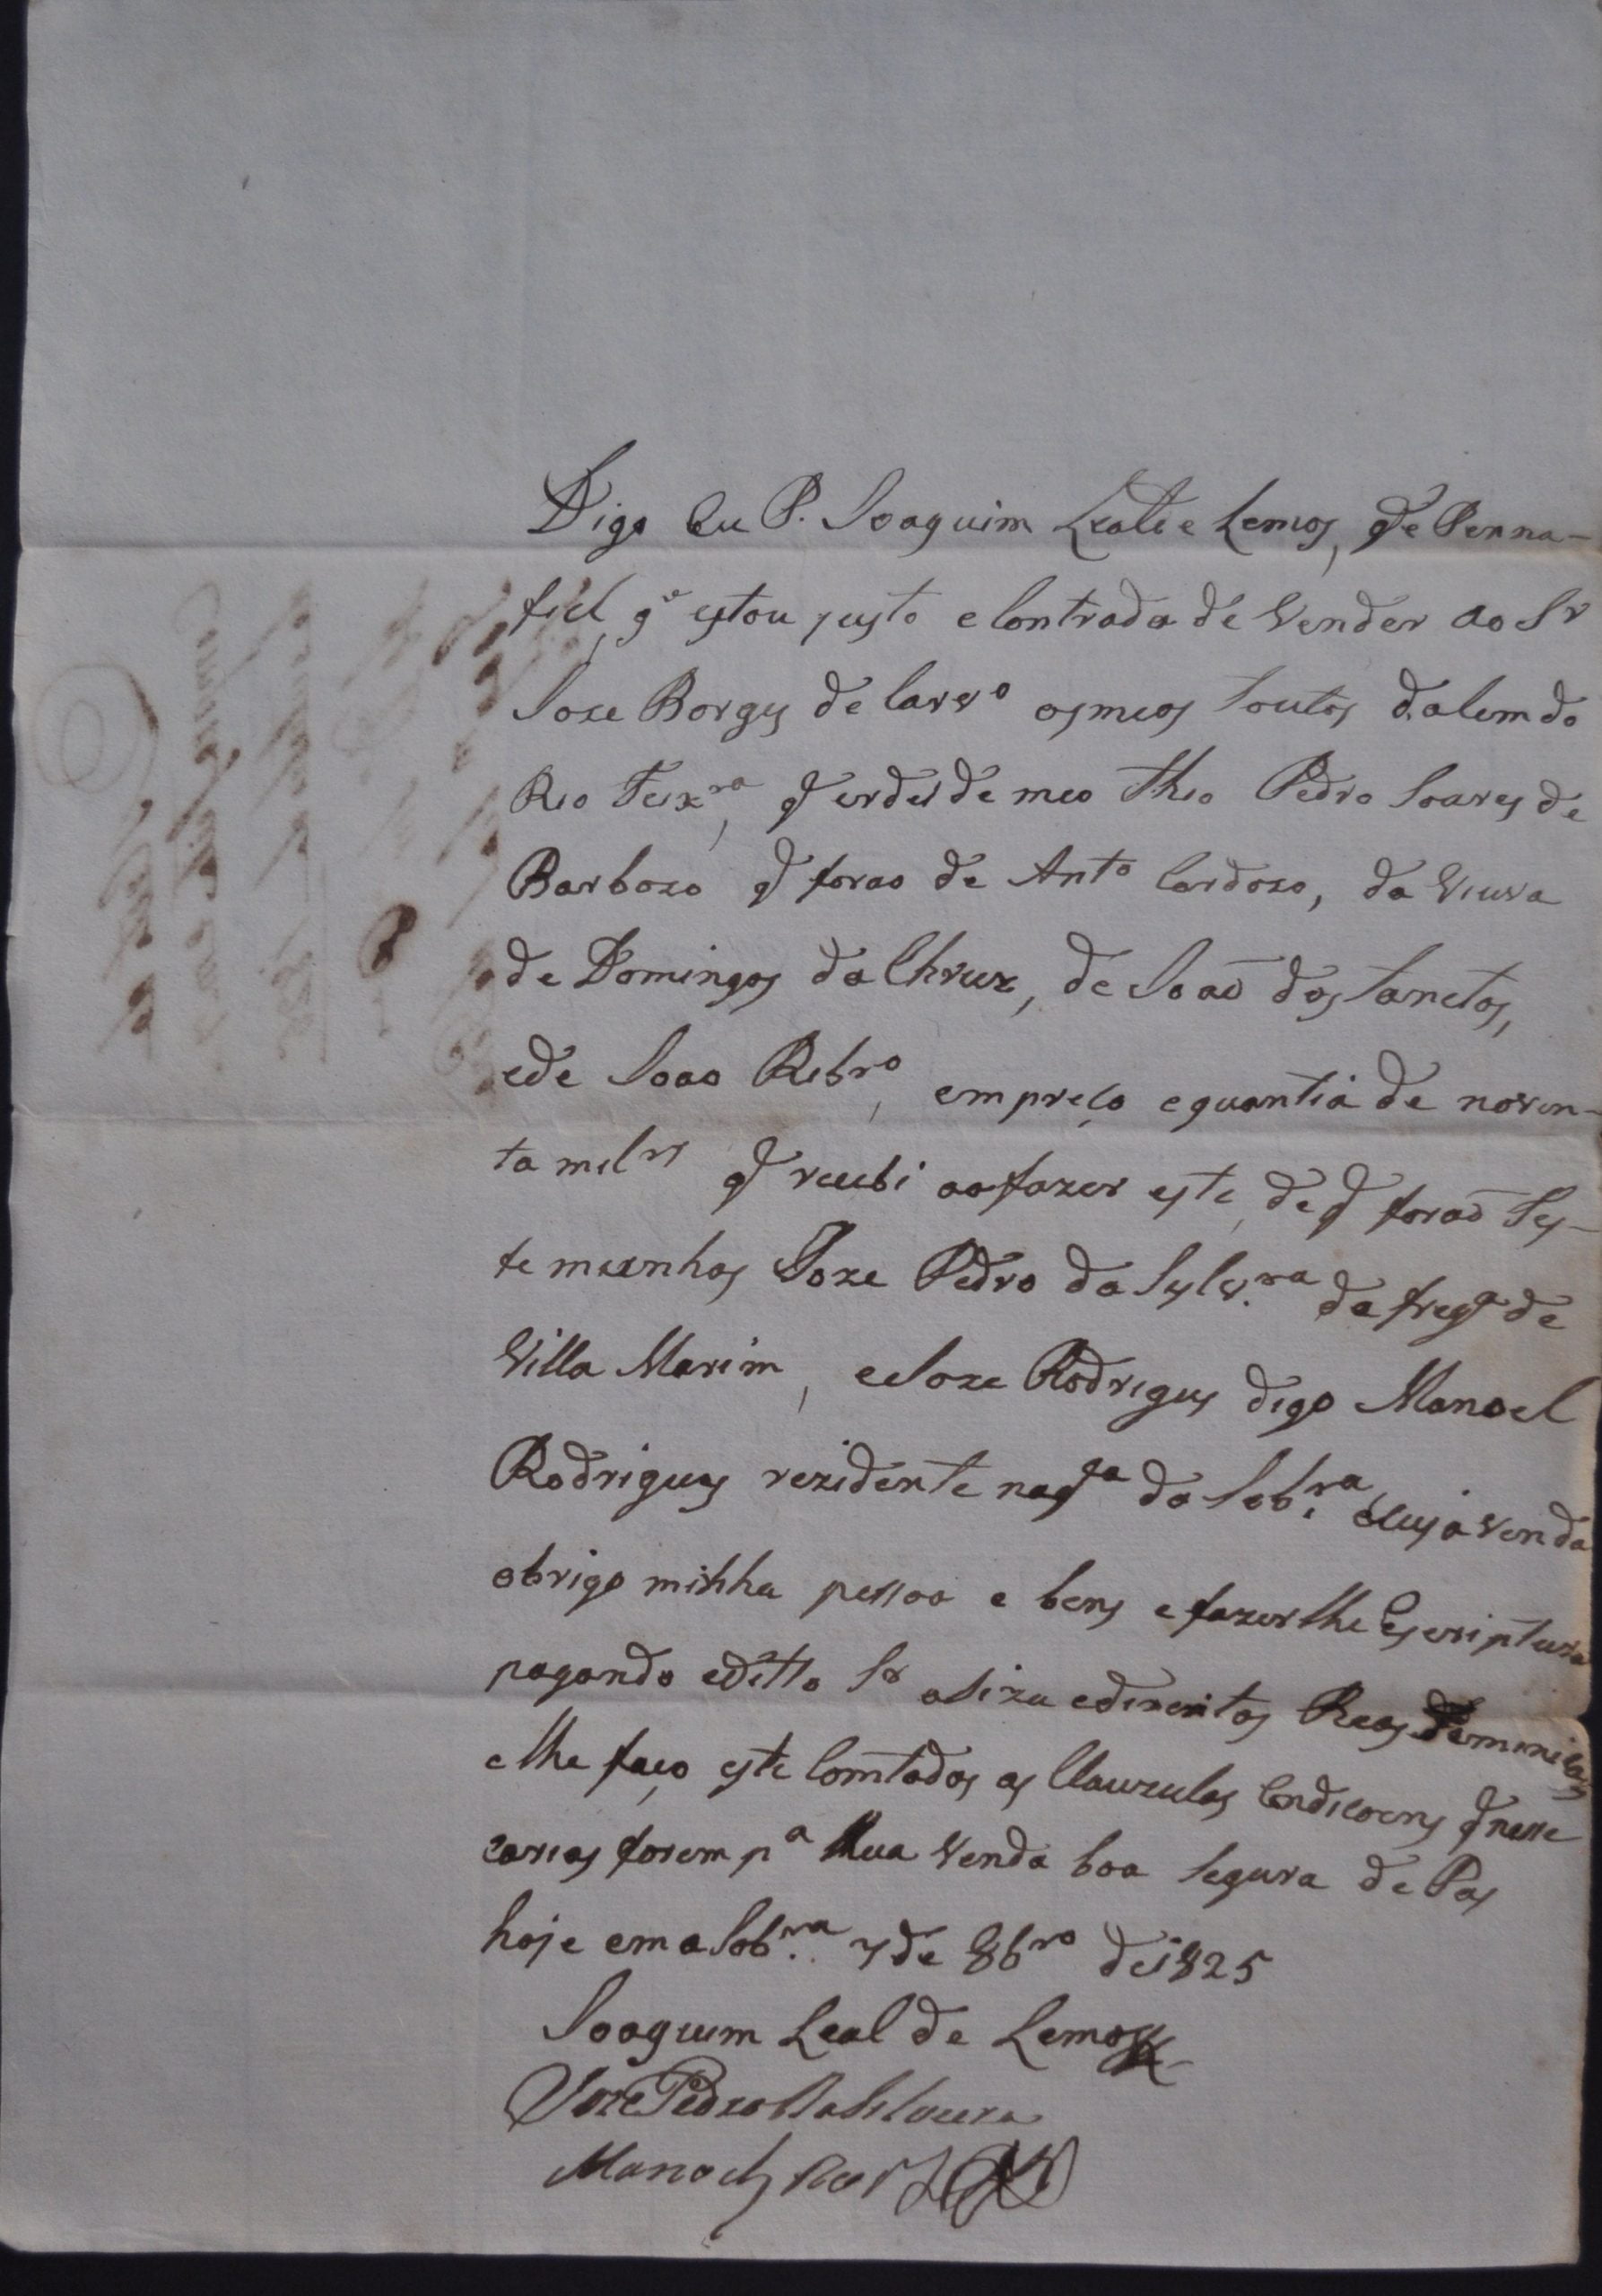 Digo Eu P. Joaquim Leal de Lemos, de Penna-
fiel, q.e estou justo e Contrada de Vender ao Sr
Joze Borges de Carv.o os meos Soutos dalem do
Rio Teix.ra, q̃ erdei de meo Thio Pedro Soares de
Barbozo q̃ forao de Ant.o Cardozo, da Viuva
de Domingos da Chruz, de Joaõ dos Sanctos,
e de Joao Ribr.o, em preço e quantia de noven-
ta mil rs q̃ recebi ao fazer este, de q̃ foraõ Tes-
temunhas Joze Pedro da Sylv.ra da freg.a de
Villa Marim, e Joze Rodrigues digo Manoel
Rodrigues rezidente na q.ta da Sob.ra cuja venda
obrigo minha pessoa e bens e fazer lhe Escriptura
pagando o ditto Sr a Siza e direitos Reas
e lhe faço este Com todas as Clauzulas Condicoens q̃ nesse
carias forem p.a Sua Venda boa segura de Pas
hoje em a Sob.ra 7 de 8br.o de 1825
Joaquim Leal de Lemos
Joze Pedro da Silveira
Manoel Roiz